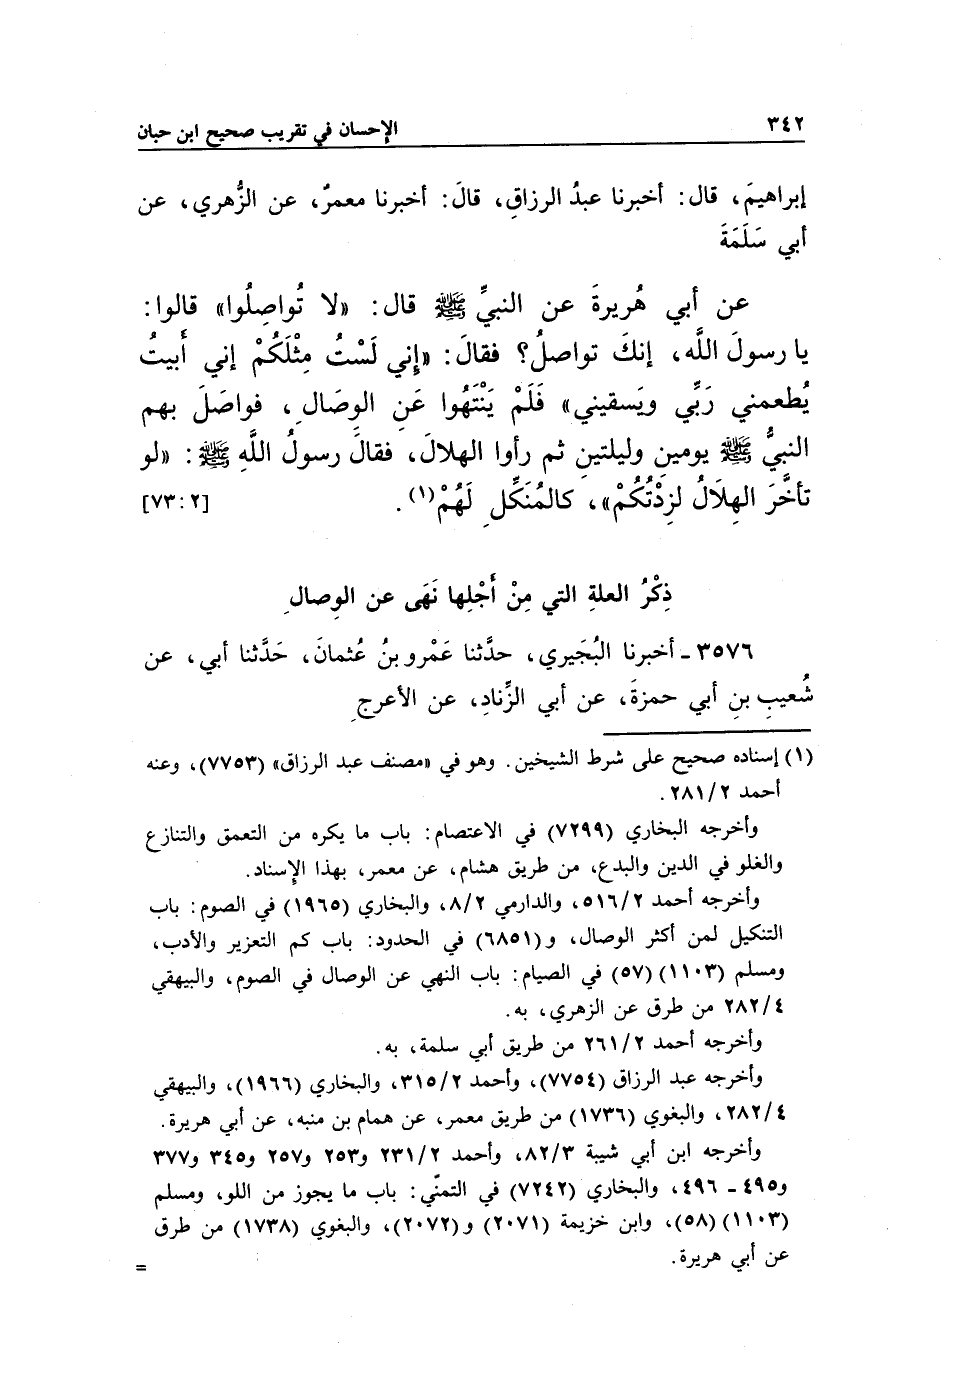 ٣٤٢
الإحسان في تقريب صحيح ابن حبان
إبراهيمَ، قال: أخبرنا عبدُ الرزاقِ، قالَ: أخبرنا معمرٌ، عن الزُّهري، عن
أبي سَلَمَةَ
عن أبي هُريرةَ عن النبيِّ ﷺ قال: «لا تُواصِلُوا» قالوا:
يا رسولَ اللَّه، إنكَ تواصلُ؟ فقالَ: «إِني لَسْتُ مِثْلَكُمْ إني أَبيتُ
يُطعمني رَبِّي ويَسقيني» فَلَمْ يَنْتَهُوا عَنِ الوِصَالِ، فواصَلَ بهم
النبيُّ ﷺ يومينِ وليلتينِ ثم رأوا الهلالَ، فقالَ رسولُ اللَّهِ ﷺ: «لو
تأخَّرَ الهِلَالُ لزِدْتُكُمْ»، كالمُنَكِّلِ لَهُمْ(١). [٢: ٧٣]
ذِكْرُ العلةِ التي مِنْ أَجْلِها نَهَى عن الوِصالِ
٣٥٧٦ ـ أخبرنا البُجَيري، حدَّثنا عَمْرو بنُ عُثمانَ، حَدَّثنا أبي، عن
شُعيبِ بنِ أبي حمزةَ، عن أبي الزِّنادِ، عن الأعرجِ
(١) إسناده صحيح على شرط الشيخين. وهو في «مصنف عبد الرزاق» (٧٧٥٣)، وعنه
أحمد ٢٨١/٢.
وأخرجه البخاري (٧٢٩٩) في الاعتصام: باب ما يكره من التعمق والتنازع
والغلو في الدين والبدع، من طريق هشام، عن معمر، بهذا الإسناد.
وأخرجه أحمد ٥١٦/٢، والدارمي ٨/٢، والبخاري (١٩٦٥) في الصوم: باب
التنكيل لمن أكثر الوصال، و(٦٨٥١) في الحدود: باب كم التعزير والأدب،
ومسلم (١١٠٣) (٥٧) في الصيام: باب النهي عن الوصال في الصوم، والبيهقي
٢٨٢/٤ من طرق عن الزهري، به.
وأخرجه أحمد ٢٦١/٢ من طريق أبي سلمة، به.
وأخرجه عبد الرزاق (٧٧٥٤)، وأحمد ٣١٥/٢، والبخاري (١٩٦٦)، والبيهقي
٢٨٢/٤، والبغوي (١٧٣٦) من طريق معمر، عن همام بن منبه، عن أبي هريرة.
وأخرجه ابن أبي شيبة ٨٢/٣، وأحمد ٢٣١/٢ و٢٥٣ و٢٥٧ و٣٤٥ و٣٧٧
و٤٩٥ ـ ٤٩٦، والبخاري (٧٢٤٢) في التمنّي: باب ما يجوز من اللو، ومسلم
(١١٠٣) (٥٨)، وابن خزيمة (٢٠٧١) و(٢٠٧٢)، والبغوي (١٧٣٨) من طرق
عن أبي هريرة.
=